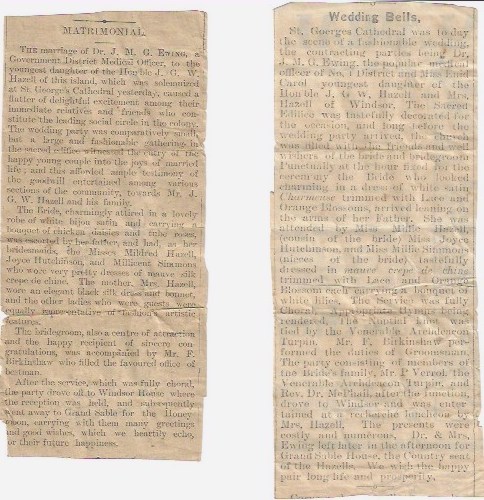 MATRIMONIAL.
THE marriage of Dr. J. M. G. EWING, a
Government District Medical Officer, to the
youngest daughter of the Hon'ble J. G. W.
Hazell of this island, which was solemnized
at St. George's Cathedral yesterday, caused a
flutter of delightful excitement among their
immediate relatives and friends who con-
stitute the leading social circle in the colony.
The wedding party was comparatively small,
but a large and fashionable gathering in
the sacred edifice witnessed the entry of the
happy young couple into the joys of married
life; and this afforded ample testimony of
the goodwill entertained among various
sections of the community, towards Mr. J.
G. W. Hazell and his family.
The Bride, charmingly attired in a lovely
robe of white bijou satin and carrying a
bouquet of chicken daisies and tube roses,
was escorted by her father, and had, as her
bridesmaids, the Misses Mildred Hazell,
Joyce Hutchinson, and Millicent Simmons
who wore very pretty dresses of mauve silk
crepe de chine. The mother, Mrs. Hazell,
wore an elegant black silk dress and bonnet,
and the other ladies who were guests were
equally representative of fashion's artistic
features.
The bridegroom, also a centre of attraction
and the happy recipient of sincere con-
gratulations, was accompanied by Mr. F.
Birkinshaw who filled the favoured office of
bestman.
After the service, which was fully choral,
the party drove off to Windsor House where
the reception was held, and subsequently
went away to Grand Sable for the Honey-
moon, carrying with them many greetings
and good wishes, which we heartily echo,
for their future happiness.
Wedding Bells.
St. Goerges Cathedral was to-day
the scene of a fashionable wedding,
the contracting parties being Dr.
J. M. G. Ewing, the popular medical
officer of No. 1 District and Miss Enid
Carol youngest daughter of the
Hon'ble J. G. W. Hazell and Mrs.
Hazell of Windsor. The Sacred
Edifice was tastefully decorated for
the occasion, and long before the
wedding party arrived, the Church
was filled with the friends and well
wishers of the bride and bridegroom
Punctually at the hour fixed for the
ceremony the Bride who looked
charming in a dress of white satin
Charmeuse trimmed with Lace and
Orange Blossoms, arrived leaning on
the arms of her Father. She was
attended by Miss Millie Hazell,
(cousin of the bride) Miss Joyce
Hutchinson, and Miss Millie Simmons
(nieces of the bride) tastefully
dressed in mauve crepe de chine
trimmed with Lace and Orange
Blossom each carrying a bouquet of
white lilies. The Service was fully
Choral, appropriate Hymns being
rendered. The Nuptial Knot was
tied by the Venerable Archdeacon
Turpin. Mr. F. Birkinshaw per-
formed the duties of Groomsman.
The party consisting of members of
the Bride's family, Mr. P Verrol, the
Venerable Archdeacon Turpin, and
Rev. Dr. McPhail, after the function,
drove to Windsor and was enter-
tained at a recherche luncheon by
Mrs. Hazell. The presents were
costly and numerous. Dr. & Mrs.
Ewing left later in the afternoon for
Grand Sable House, the Country seat
of the Hazells. We wish the happy
pair long life and prosperity.